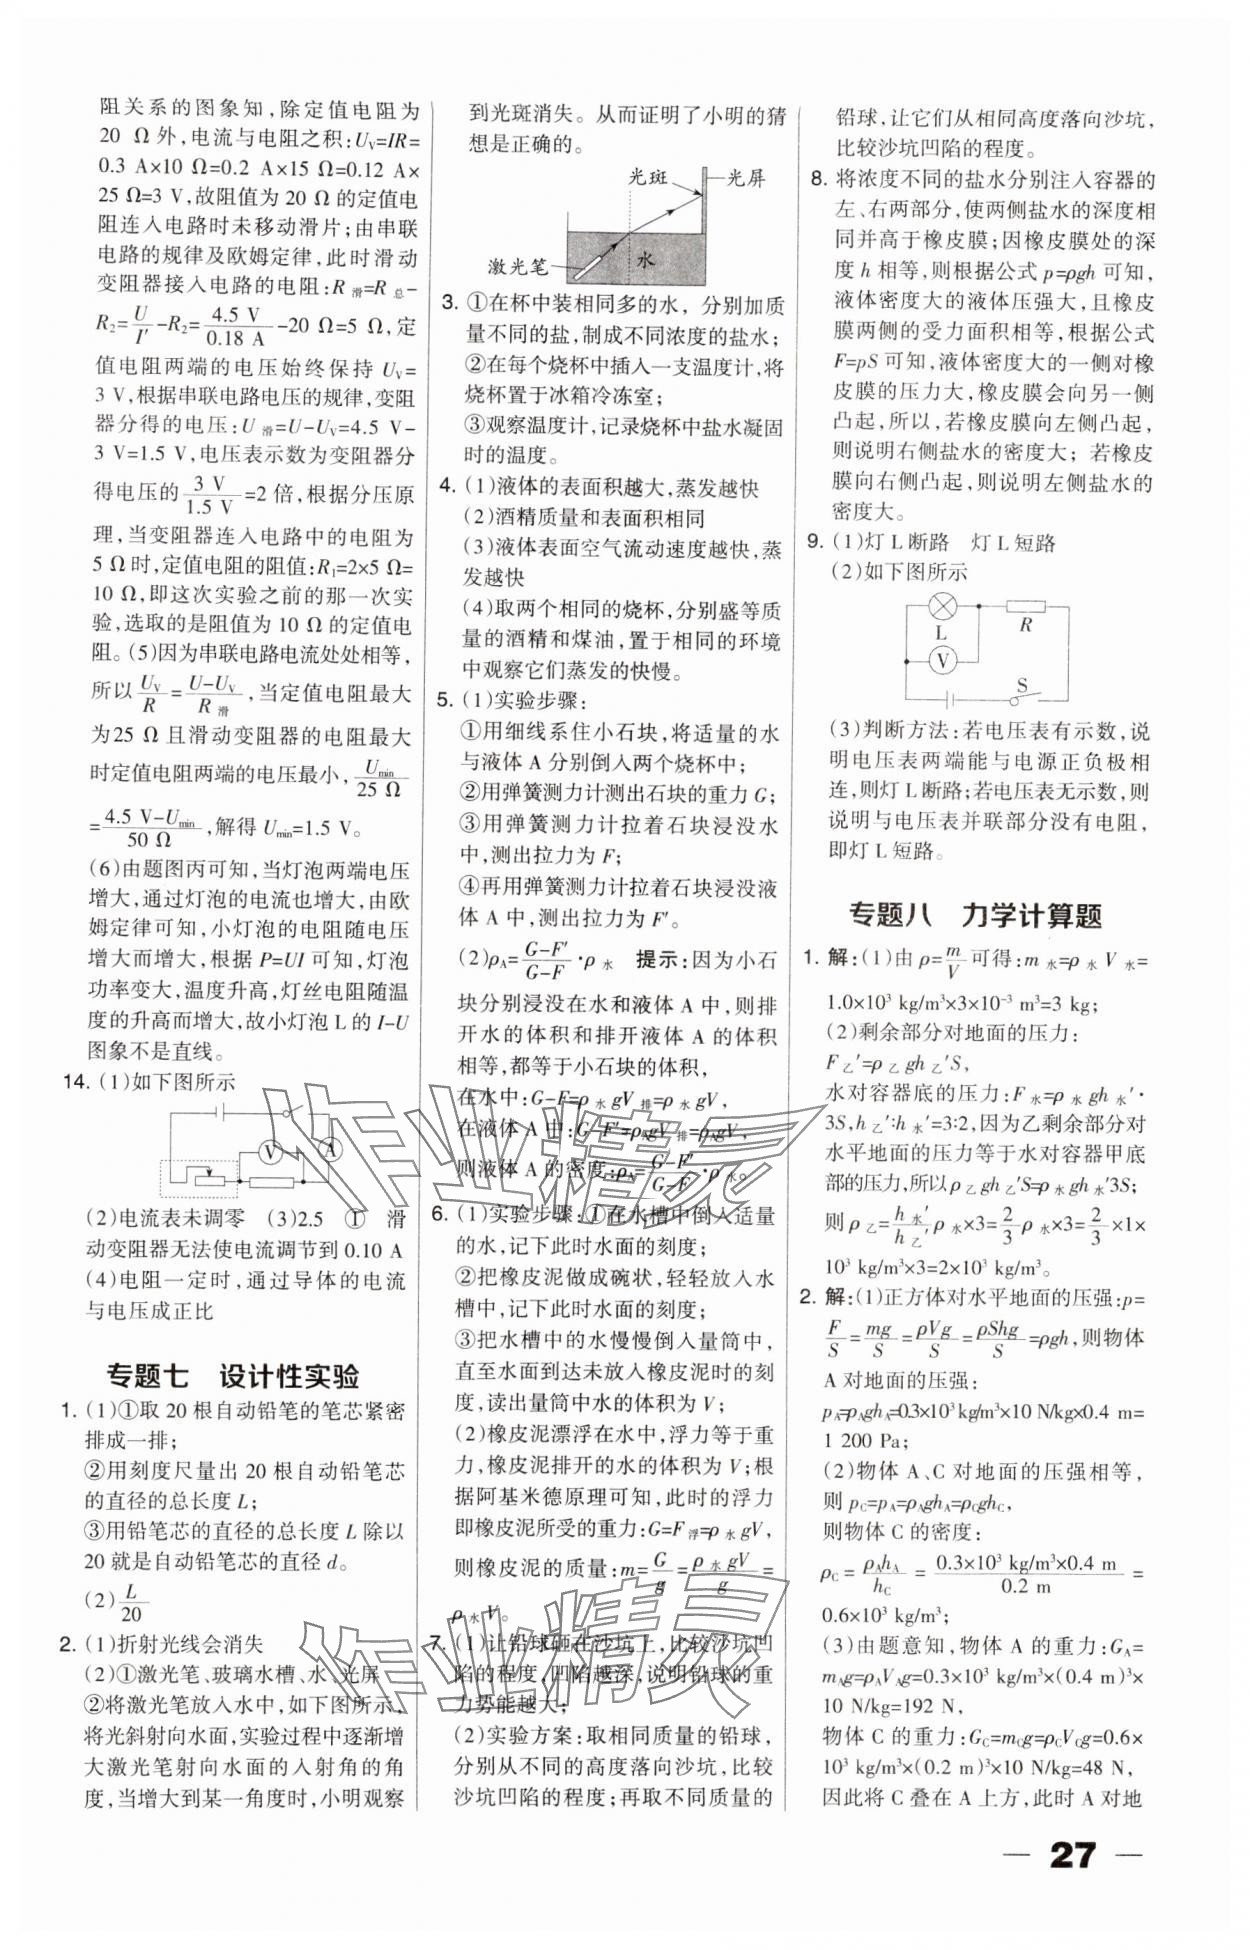 阻关系的图象知,除定值电阻为
20 Ω外,电流与电阻之积:U_V=IR=
0.3 A×10 Ω=0.2 A×15 Ω=0.12 A×
25 Ω=3 V,故阻值为20 Ω的定值电
阻连入电路时未移动滑片;由串联
电路的规律及欧姆定律,此时滑动
变阻器接入电路的电阻:R滑=R总-
R₂=U/I′-R₂=4.5 V/0.18 A-20 Ω=5 Ω,定
值电阻两端的电压始终保持 U_V=
3 V,根据串联电路电压的规律,变阻
器分得的电压:U滑=U-U_V=4.5 V-
3 V=1.5 V,电压表示数为变阻器分
得电压的 3 V/1.5 V=2倍,根据分压原
理,当变阻器连入电路中的电阻为
5 Ω时,定值电阻的阻值:R₁=2×5 Ω=
10 Ω,即这次实验之前的那一次实
验,选取的是阻值为10 Ω的定值电
阻。(5)因为串联电路电流处处相等,
所以 U_V/R=(U-U_V)/R滑,当定值电阻最大
为25 Ω且滑动变阻器的电阻最大
时定值电阻两端的电压最小,U_min/25 Ω
=(4.5 V-U_min)/50 Ω,解得U_min=1.5 V。
(6)由题图丙可知,当灯泡两端电压
增大,通过灯泡的电流也增大,由欧
姆定律可知,小灯泡的电阻随电压
增大而增大,根据P=UI可知,灯泡
功率变大,温度升高,灯丝电阻随温
度的升高而增大,故小灯泡L的I-U
图象不是直线。
14. (1)如下图所示
V A
(2)电流表未调零 (3)2.5 ① 滑
动变阻器无法使电流调节到0.10 A
(4)电阻一定时,通过导体的电流
与电压成正比
专题七 设计性实验
1. (1)①取20根自动铅笔的笔芯紧密
排成一排;
②用刻度尺量出20根自动铅笔芯
的直径的总长度L;
③用铅笔芯的直径的总长度L除以
20就是自动铅笔芯的直径d。
(2)L/20
2. (1)折射光线会消失
(2)①激光笔、玻璃水槽、水、光屏
②将激光笔放入水中,如下图所示,
将光斜射向水面,实验过程中逐渐增
大激光笔射向水面的入射角的角
度,当增大到某一角度时,小明观察
到光斑消失。从而证明了小明的猜
想是正确的。
光斑 光屏
激光笔 水
3. ①在杯中装相同多的水,分别加质
量不同的盐,制成不同浓度的盐水;
②在每个烧杯中插入一支温度计,将
烧杯置于冰箱冷冻室;
③观察温度计,记录烧杯中盐水凝固
时的温度。
4. (1)液体的表面积越大,蒸发越快
(2)酒精质量和表面积相同
(3)液体表面空气流动速度越快,蒸
发越快
(4)取两个相同的烧杯,分别盛等质
量的酒精和煤油,置于相同的环境
中观察它们蒸发的快慢。
5. (1)实验步骤:
①用细线系住小石块,将适量的水
与液体A分别倒入两个烧杯中;
②用弹簧测力计测出石块的重力G;
③用弹簧测力计拉着石块浸没水
中,测出拉力为F;
④再用弹簧测力计拉着石块浸没液
体A中,测出拉力为F′。
(2)ρ_A=(G-F′)/(G-F)·ρ水 提示:因为小石
块分别浸没在水和液体A中,则排
开水的体积和排开液体A的体积
相等,都等于小石块的体积,
在水中:G-F=ρ水gV排=ρ水gV,
在液体A中:G-F′=ρ_AgV排=ρ_AgV,
则液体A的密度:ρ_A=(G-F′)/(G-F)·ρ水。
6. (1)实验步骤:①在水槽中倒入适量
的水,记下此时水面的刻度;
②把橡皮泥做成碗状,轻轻放入水
槽中,记下此时水面的刻度;
③把水槽中的水慢慢倒入量筒中,
直至水面到达未放入橡皮泥时的刻
度,读出量筒中水的体积为V;
(2)橡皮泥漂浮在水中,浮力等于重
力,橡皮泥排开的水的体积为V;根
据阿基米德原理可知,此时的浮力
即橡皮泥所受的重力:G=F浮=ρ水gV,
则橡皮泥的质量:m=G/g=ρ水gV/g=
ρ水V。
7. (1)让铅球砸在沙坑上,比较沙坑凹
陷的程度,凹陷越深,说明铅球的重
力势能越大;
(2)实验方案:取相同质量的铅球,
分别从不同的高度落向沙坑,比较
沙坑凹陷的程度;再取不同质量的
铅球,让它们从相同高度落向沙坑,
比较沙坑凹陷的程度。
8. 将浓度不同的盐水分别注入容器的
左、右两部分,使两侧盐水的深度相
同并高于橡皮膜;因橡皮膜处的深
度h相等,则根据公式p=ρgh可知,
液体密度大的液体压强大,且橡皮
膜两侧的受力面积相等,根据公式
F=pS可知,液体密度大的一侧对橡
皮膜的压力大,橡皮膜会向另一侧
凸起,所以,若橡皮膜向左侧凸起,
则说明右侧盐水的密度大;若橡皮
膜向右侧凸起,则说明左侧盐水的
密度大。
9. (1)灯L断路 灯L短路
(2)如下图所示
L R
V
S
(3)判断方法:若电压表有示数,说
明电压表两端能与电源正负极相
连,则灯L断路;若电压表无示数,则
说明与电压表并联部分没有电阻,
即灯L短路。
专题八 力学计算题
1. 解:(1)由ρ=m/V可得:m水=ρ水V水=
1.0×10³ kg/m³×3×10⁻³ m³=3 kg;
(2)剩余部分对地面的压力:
F乙′=ρ乙gh乙′S,
水对容器底的压力:F水=ρ水gh水′·
3S,h乙′:h水′=3:2,因为乙剩余部分对
水平地面的压力等于水对容器甲底
部的压力,所以ρ乙gh乙′S=ρ水gh水′3S;
则ρ乙=h水′/h乙′ρ水×3=2/3ρ水×3=2/3×1×
10³ kg/m³×3=2×10³ kg/m³。
2. 解:(1)正方体对水平地面的压强:p=
F/S=mg/S=ρVg/S=ρShg/S=ρgh,则物体
A对地面的压强:
p_A=ρ_Agh_A=0.3×10³kg/m³×10 N/kg×0.4 m=
1 200 Pa;
(2)物体A、C对地面的压强相等,
则p_C=p_A=ρ_Agh_A=ρ_Cgh_C,
则物体C的密度:
ρ_C=ρ_Ah_A/h_C=(0.3×10³ kg/m³×0.4 m)/0.2 m=
0.6×10³ kg/m³;
(3)由题意知,物体A的重力:G_A=
m_Ag=ρ_AV_Ag=0.3×10³ kg/m³×(0.4 m)³×
10 N/kg=192 N,
物体C的重力:G_C=m_Cg=ρ_CV_Cg=0.6×
10³ kg/m³×(0.2 m)³×10 N/kg=48 N,
因此将C叠在A上方,此时A对地
— 27 —
作业精灵
作业精灵